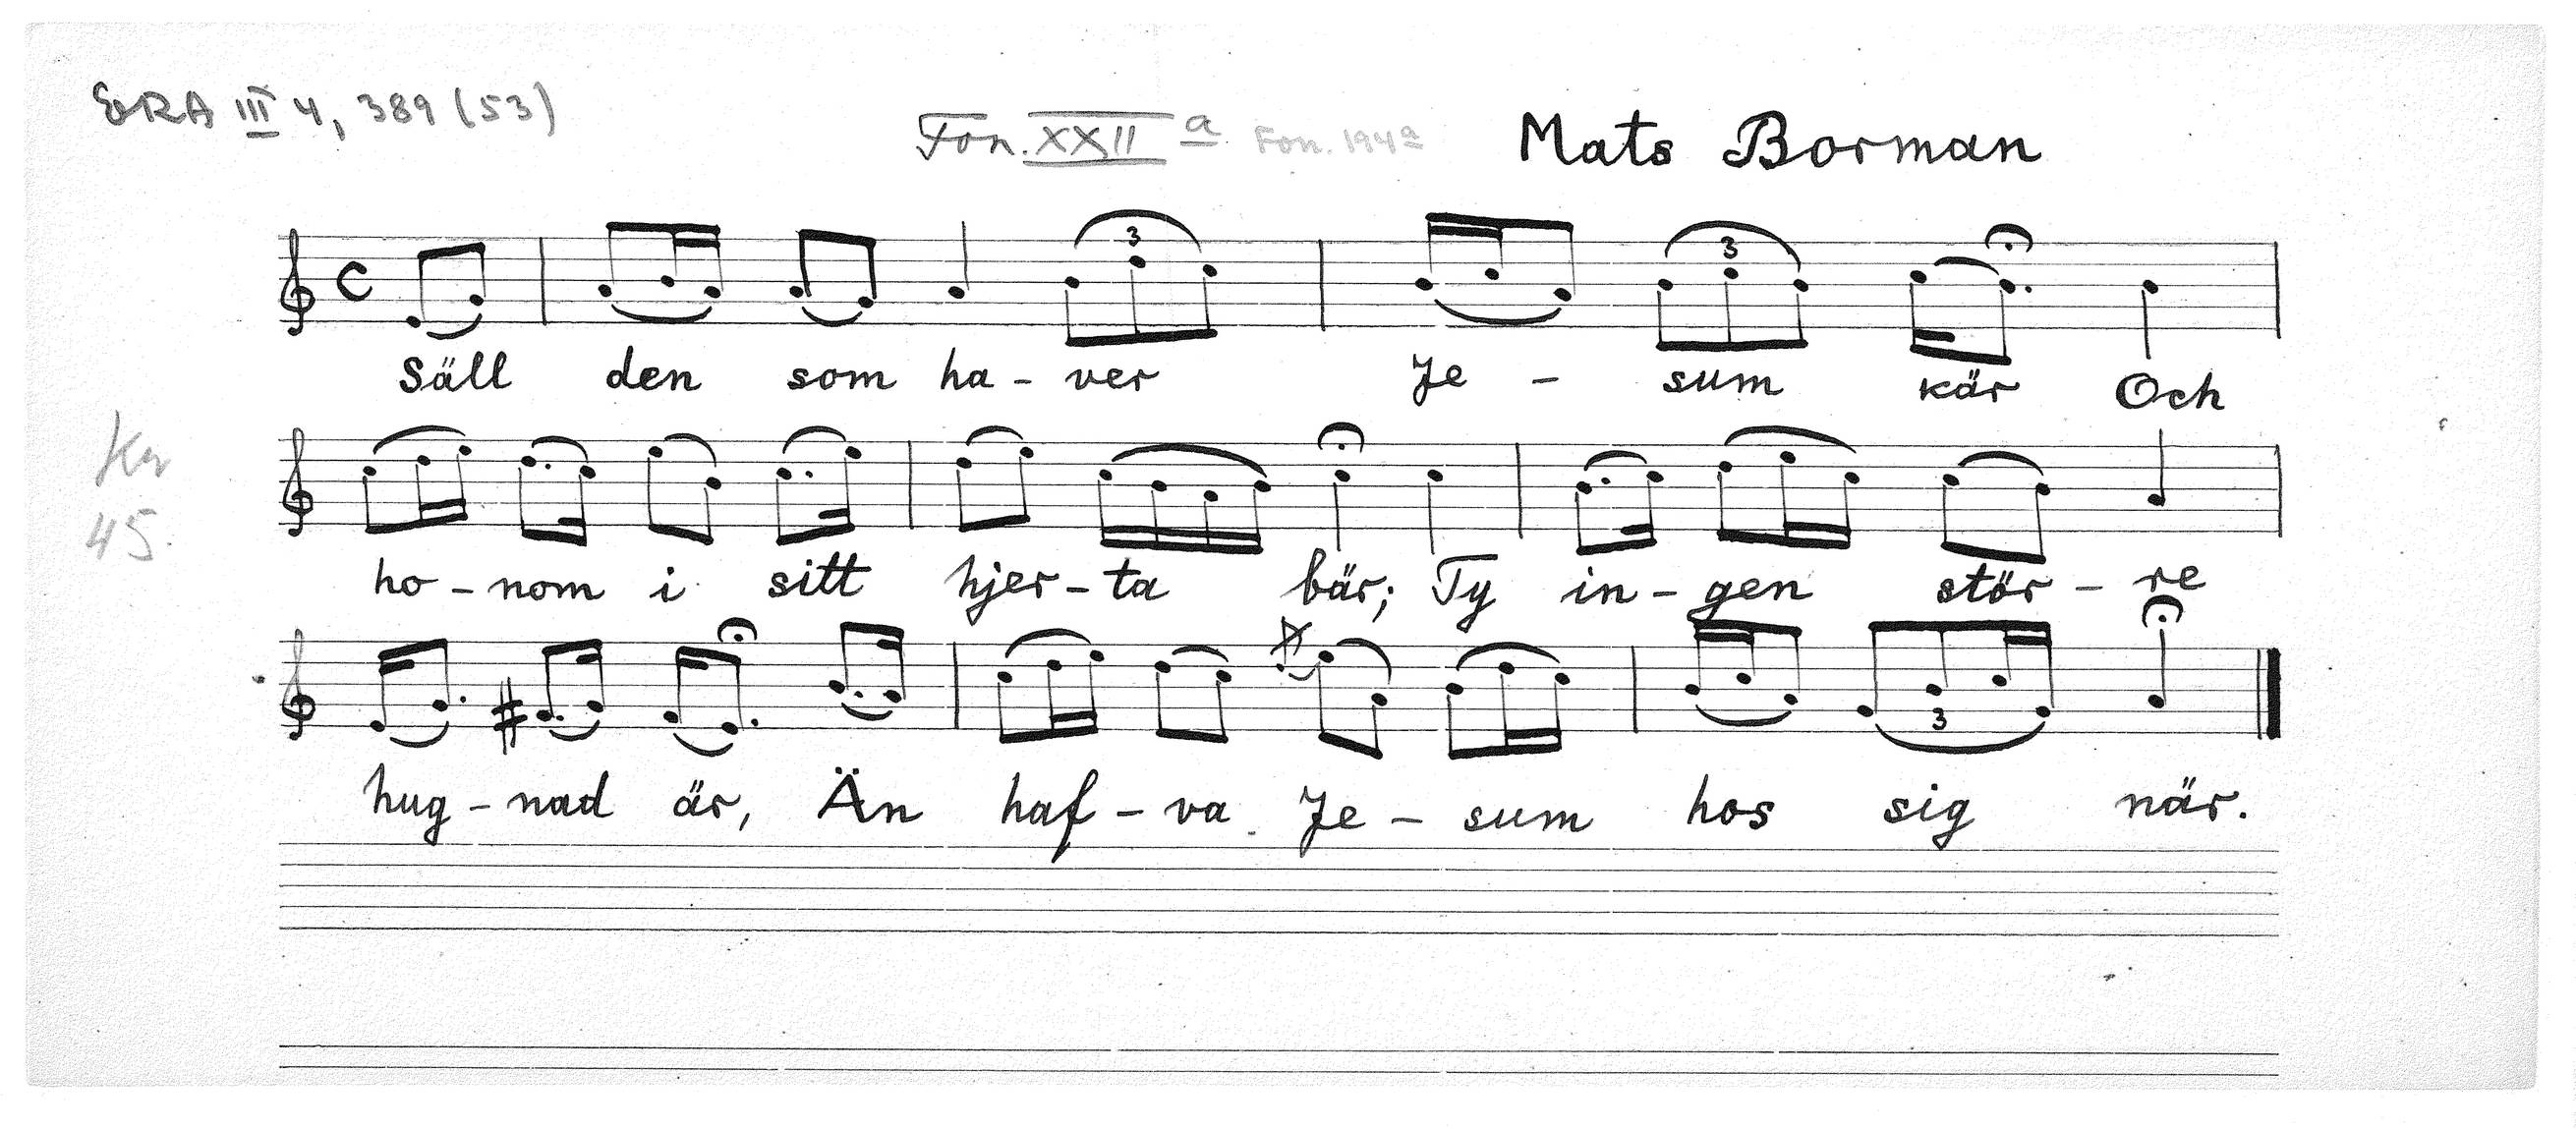 ERA III 4, 389 (53)
Fon. XXII a Fon. 194a Mats Borman
3 3
Säll den som ha - ver Je - sum kär Och
Kr
45.
ho - nom i sitt hjer - ta bär; Ty in - gen stör - re
hug - nad är, Än haf - va Je - sum hos sig när.
3